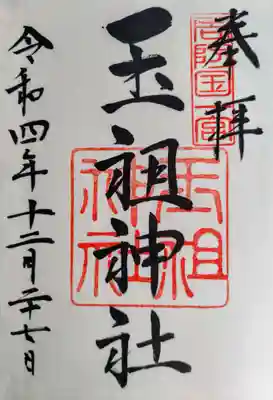 奉拝
周防国一宮
玉祖神社
玉祖神社
令和四年十二月二十七日